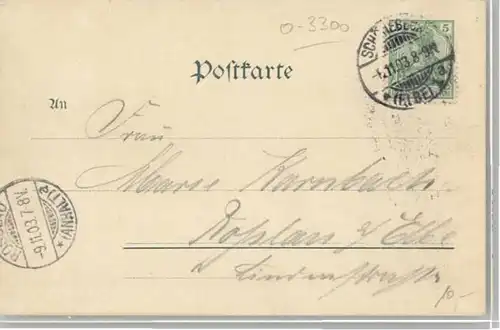 0-3300
5
SCHOENEBECK
-4.11.03.8-9N.
* (ELBE) a
Postkarte
An
Frau
Marie Karnbach
Roßlau a/Elbe
Lindenstraße
ROSSLAU
-9.11.03.7.8V.
* (ANHALT) a
10.-